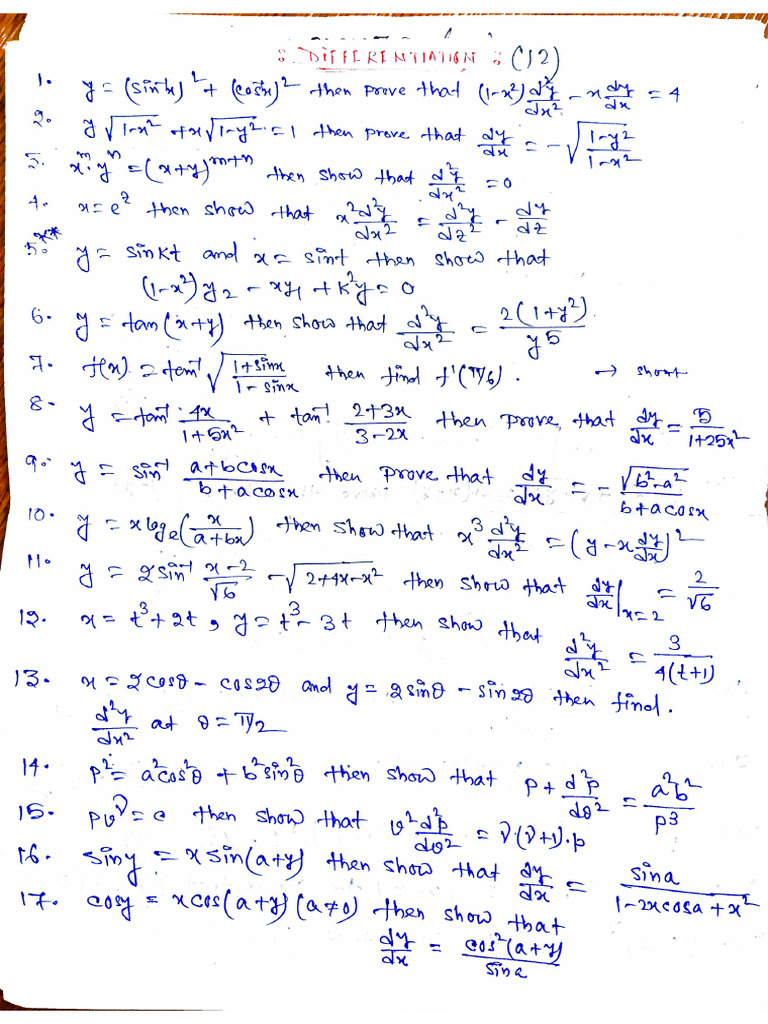 : DIFFERENTIATION : (12)
1. y = (sin⁻¹x)² + (cos⁻¹x)² then prove that (1-x²) d²y/dx² - x dy/dx = 4
2. y√(1-x²) + x√(1-y²) = 1 then prove that dy/dx = -√((1-y²)/(1-x²))
3. x^m. y^n = (x+y)^(m+n) then show that d²y/dx² = 0
4. x = e^z then show that x² d²y/dx² = d²y/dz² - dy/dz
** 5. y = sin kt and x = sint then show that
(1-x²) y₂ - xy₁ + k²y = 0
6. y = tan(x+y) then show that d²y/dx² = 2(1+y²)/y5
7. f(x) = tan⁻¹ √((1+sinx)/(1-sinx)) then find f'(π/6). → short
8. y = tan⁻¹ 4x/(1+5x²) + tan⁻¹ (2+3x)/(3-2x) then prove that dy/dx = 5/(1+25x²)
9. y = sin⁻¹ (a+bcosx)/(b+acosx) then prove that dy/dx = - √(b²-a²)/(b+acosx)
10. y = x log_e(x/(a+bx)) then show that x³ d²y/dx² = (y - x dy/dx)²
11. y = 2sin⁻¹ (x-2)/√6 - √(2+4x-x²) then show that dy/dx|x=2 = 2/√6
12. x = t³+2t, y = t³-3t then show that d²y/dx² = 3/(4(t+1))
13. x = 2cosθ - cos2θ and y = 2sinθ - sin2θ then find.
d²y/dx² at θ = π/2
14. p² = a²cos²θ + b²sin²θ then show that p + d²p/dθ² = a²b²/p³
15. pv^γ = c then show that v² d²p/dv² = γ(γ+1).p
16. siny = x sin(a+y) then show that dy/dx = sina/(1-2xcosa+x²)
17. cosy = xcos(a+y) (a≠0) then show that
dy/dx = cos²(a+y)/sina